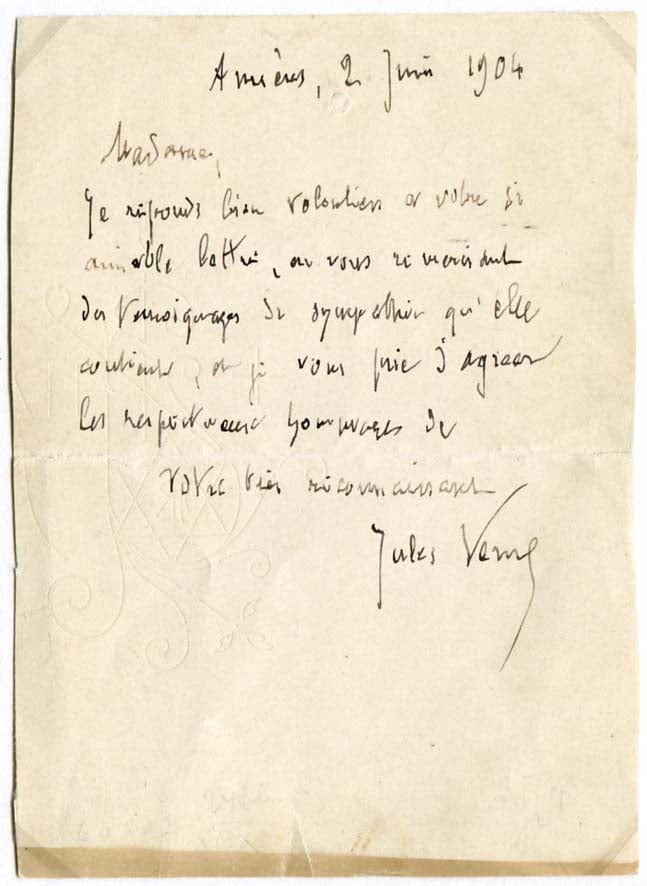 Amiens, 2 Juin 1904
Madame,
Je réponds bien volontiers à votre si
aimable lettre, en vous remerciant
des témoignages de sympathie qu'elle
contient, et je vous prie d'agréer
les respectueux hommages de
votre bien reconnaissant
Jules Verne